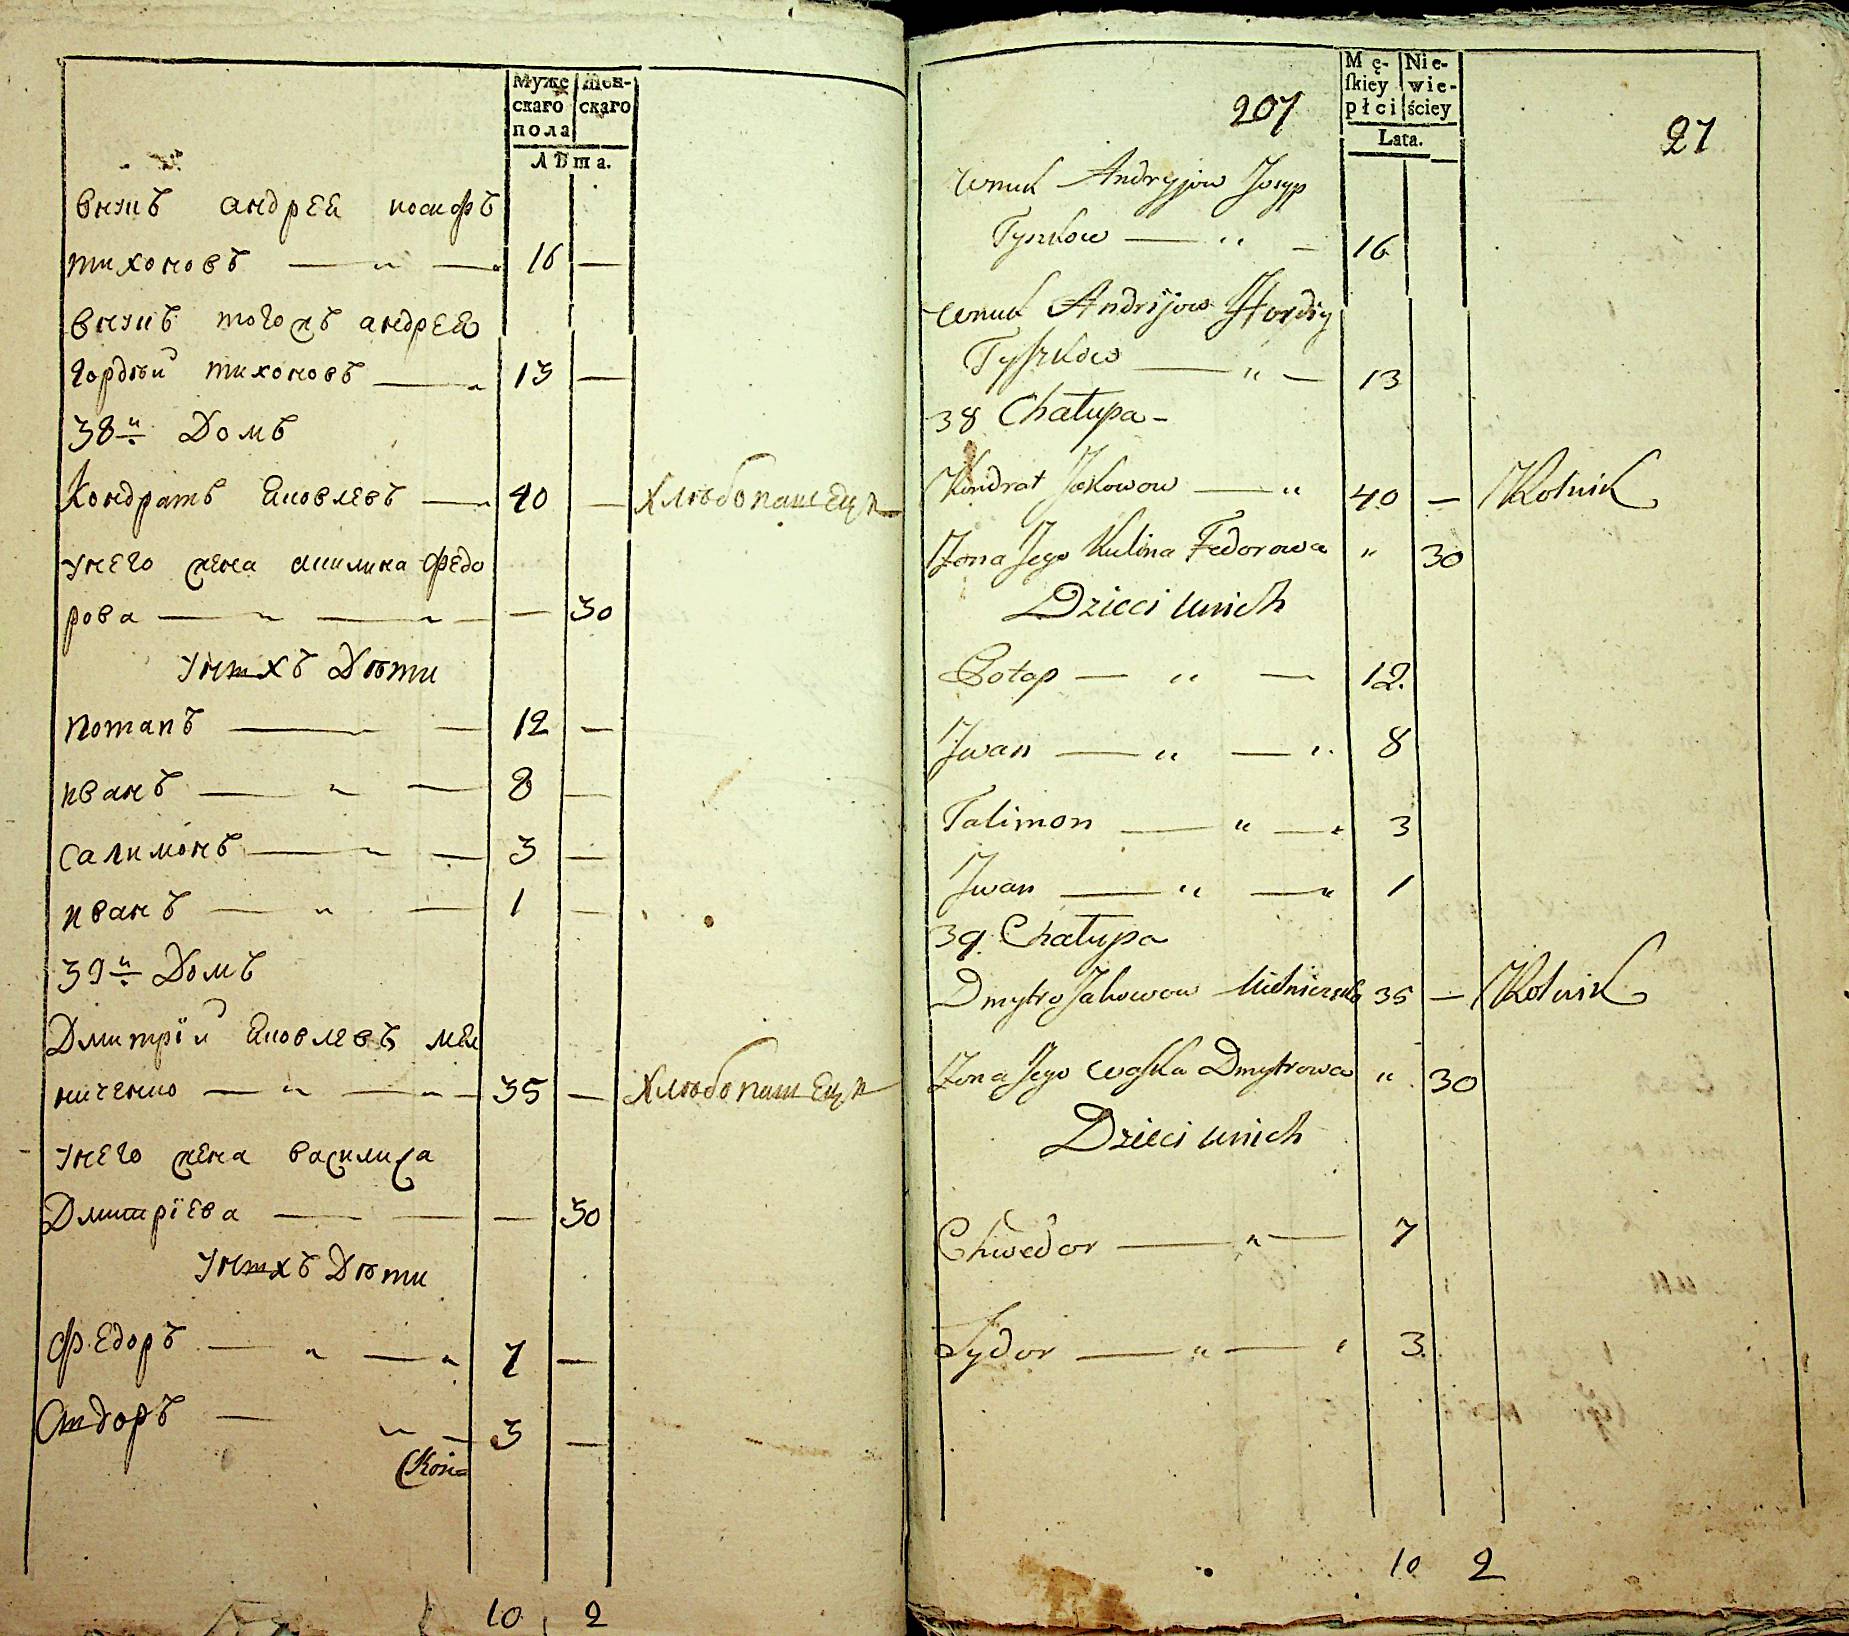 Муже
скаго
пола
Жен-
скаго
Лѣта.
внукъ андрея иосифъ
тихоновъ — " — 16 —
внукъ тогожъ андрея
гордѣй тихоновъ — " 13 —
38й Домъ
Кондратъ Яковлевъ — " 40 — Хлѣбопашецъ
унего жена акилина Федо
рова — " — " — — 30
унихъ Дѣти
потапъ — — 12 —
иванъ — " — 8 —
салимонъ — " — 3 —
иванъ — " — 1 —
39й Домъ
Дмитрій Яковлевъ мел
ниченко — " — " — 35 — Хлѣбопашецъ
унего жена василиса
Дмитріева — — — 30
унихъ Дѣти
Федоръ — " — " 7 —
Сидоръ — " — 3 —
10 2
Mę-
ſkiey
płci
Nie-
wie-
ściey
Lata.
207
27
Wnuk Andryjow Josyp
Tyszkow — " — 16
Wnuk Andrijow Hordiy
Tyszkow — " — 13
38 Chałupa -
Kondrat Jakowow — " 40 — Rolnik
Żona Jego Kulina Fedorowa " 30
Dzieci unich
Potap — " — 12.
Jwan — " — " 8
Talimon — " — " 3
Jwan — " — " 1
39. Chałupa
Dmytro Jakowow 35 — Rolnik
Żona Jego Waska Dmytrowa " 30
Dzieci unich
Chwedor — " — 7
Sydor — " — " 3
10 2